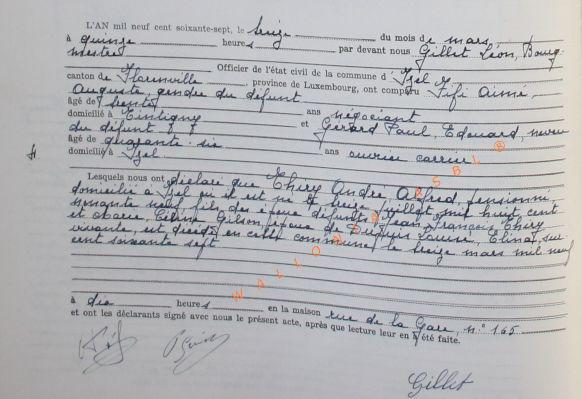 L'AN mil neuf cent soixante-sept, le seize du mois de mars,
à quinze heures par devant nous Gillet Léon, Bourg-
mestre
Officier de l'état civil de la commune d'Izel
canton de Florenville, province de Luxembourg, ont comparu Fifi Aimé,
Auguste, gendre du défunt
âgé de trente ans négociant
domicilié à Tintigny et Gérard Paul, Edouard, neveu
du défunt
âgé de quarante six ans ouvrier carrier
domicilié à Izel
Lesquels nous ont déclaré que Thiry André Alfred, pensionné
domicilié à Izel où il est né le treize juillet mil huit cent
nonante neuf, fils des époux défunts Jean François Thiry
et Marie, Céline Gilson, époux de Dupuis Laure, Elina, sur-
vivante, est décédé en cette commune le treize mars mil neuf
cent soixante sept
à dix heures en la maison rue de la Gare, n° 165
et ont les déclarants signé avec nous le présent acte, après que lecture leur en a été faite.
Gillet